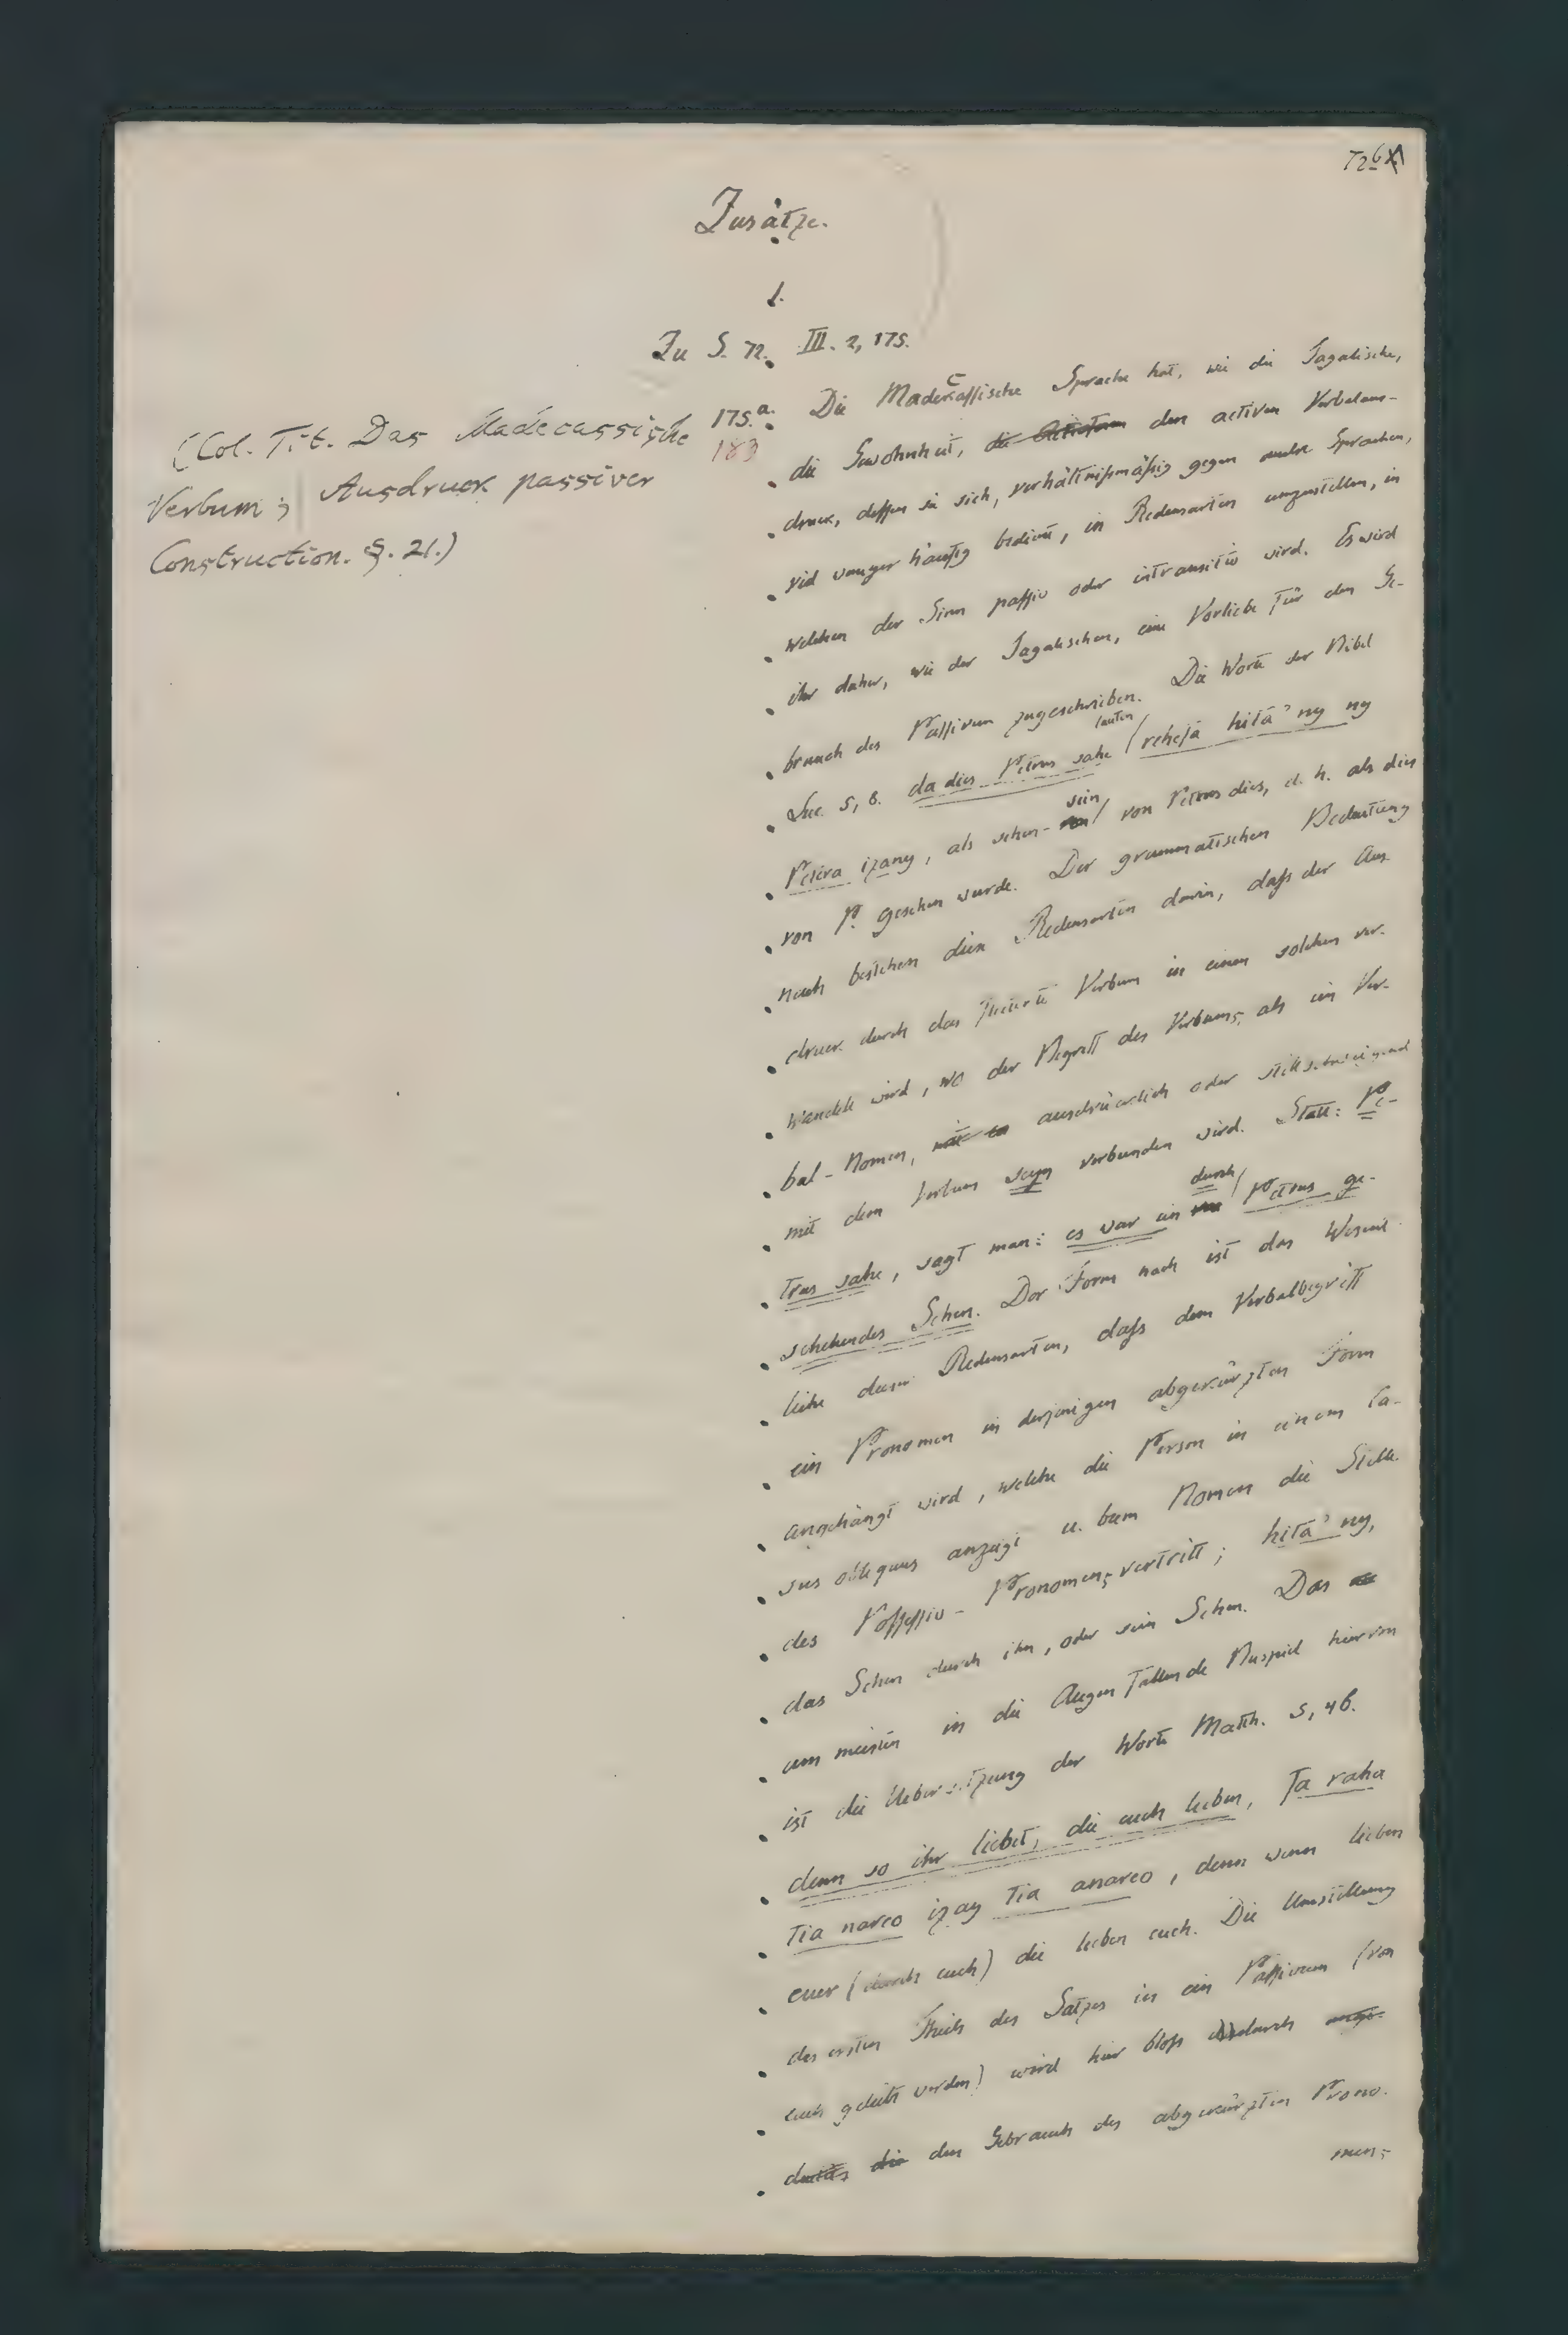 Zusätze.
1.
Zu S. 72. III. 2, 175.
(Col. Tit. Das Madecassische
Verbum; Ausdruck passiver
Construction. §. 21.)
175.a.
183
Die Madecassische Sprache hat, wie die Tagalische,
die Gewohnheit, den activen Verbalaus-
druck, dessen sie sich, verhältnißmäßig gegen andre Sprachen,
viel weniger häufig bedient, in Redensarten umzustellen, in
welchen der Sinn passiv oder intransitiv wird. Es wird
ihr daher, wie der Tagalischen, eine Vorliebe für den Ge-
brauch des Passivum zugeschrieben. Die Worte der Bibel
Luc. 5, 8. da dies Petrus sahe lauten (reheja hita' ny ny
Petera izany, als sehen-sein von Petrus dies, d. h. als dies
von P. gesehen wurde. Der grammatischen Bedeutung
nach bestehen diese Redensarten darin, daß der Aus-
druck durch das flectirte Verbum in einen solchen ver-
wandelt wird, wo der Begriff des Verbums, als ein Ver-
bal-Nomen, ausdrücklich oder stillschweigend
mit dem Verbum seyn verbunden wird. Statt: Pe-
trus sahe, sagt man: es war ein durch Petrus ge-
schehendes Sehen. Der Form nach ist das Wesent-
liche dieser Redensarten, daß dem Verbalbegriff
ein Pronomen in derjenigen abgekürzten Form
angehängt wird, welche die Person in einem Ca-
sus obliquus anzeigt u. beim Nomen die Stelle
des Possessiv-Pronomens vertritt; hita' ny,
das Sehen durch ihn, oder sein Sehen. Das
am meisten in die Augen fallende Beispiel hiervon
ist die Uebersetzung der Worte Matth. 5, 46.
denn so ihr liebet, die euch lieben, fa raha
tia nareo izay tia anareo, denn wenn lieben
euer (durch euch) die lieben euch. Die Umstellung
des ersten Theils des Satzes in ein Passivum (von
euch geliebt werden) wird hier bloß durch
den Gebrauch des abgekürzten Prono-
mens